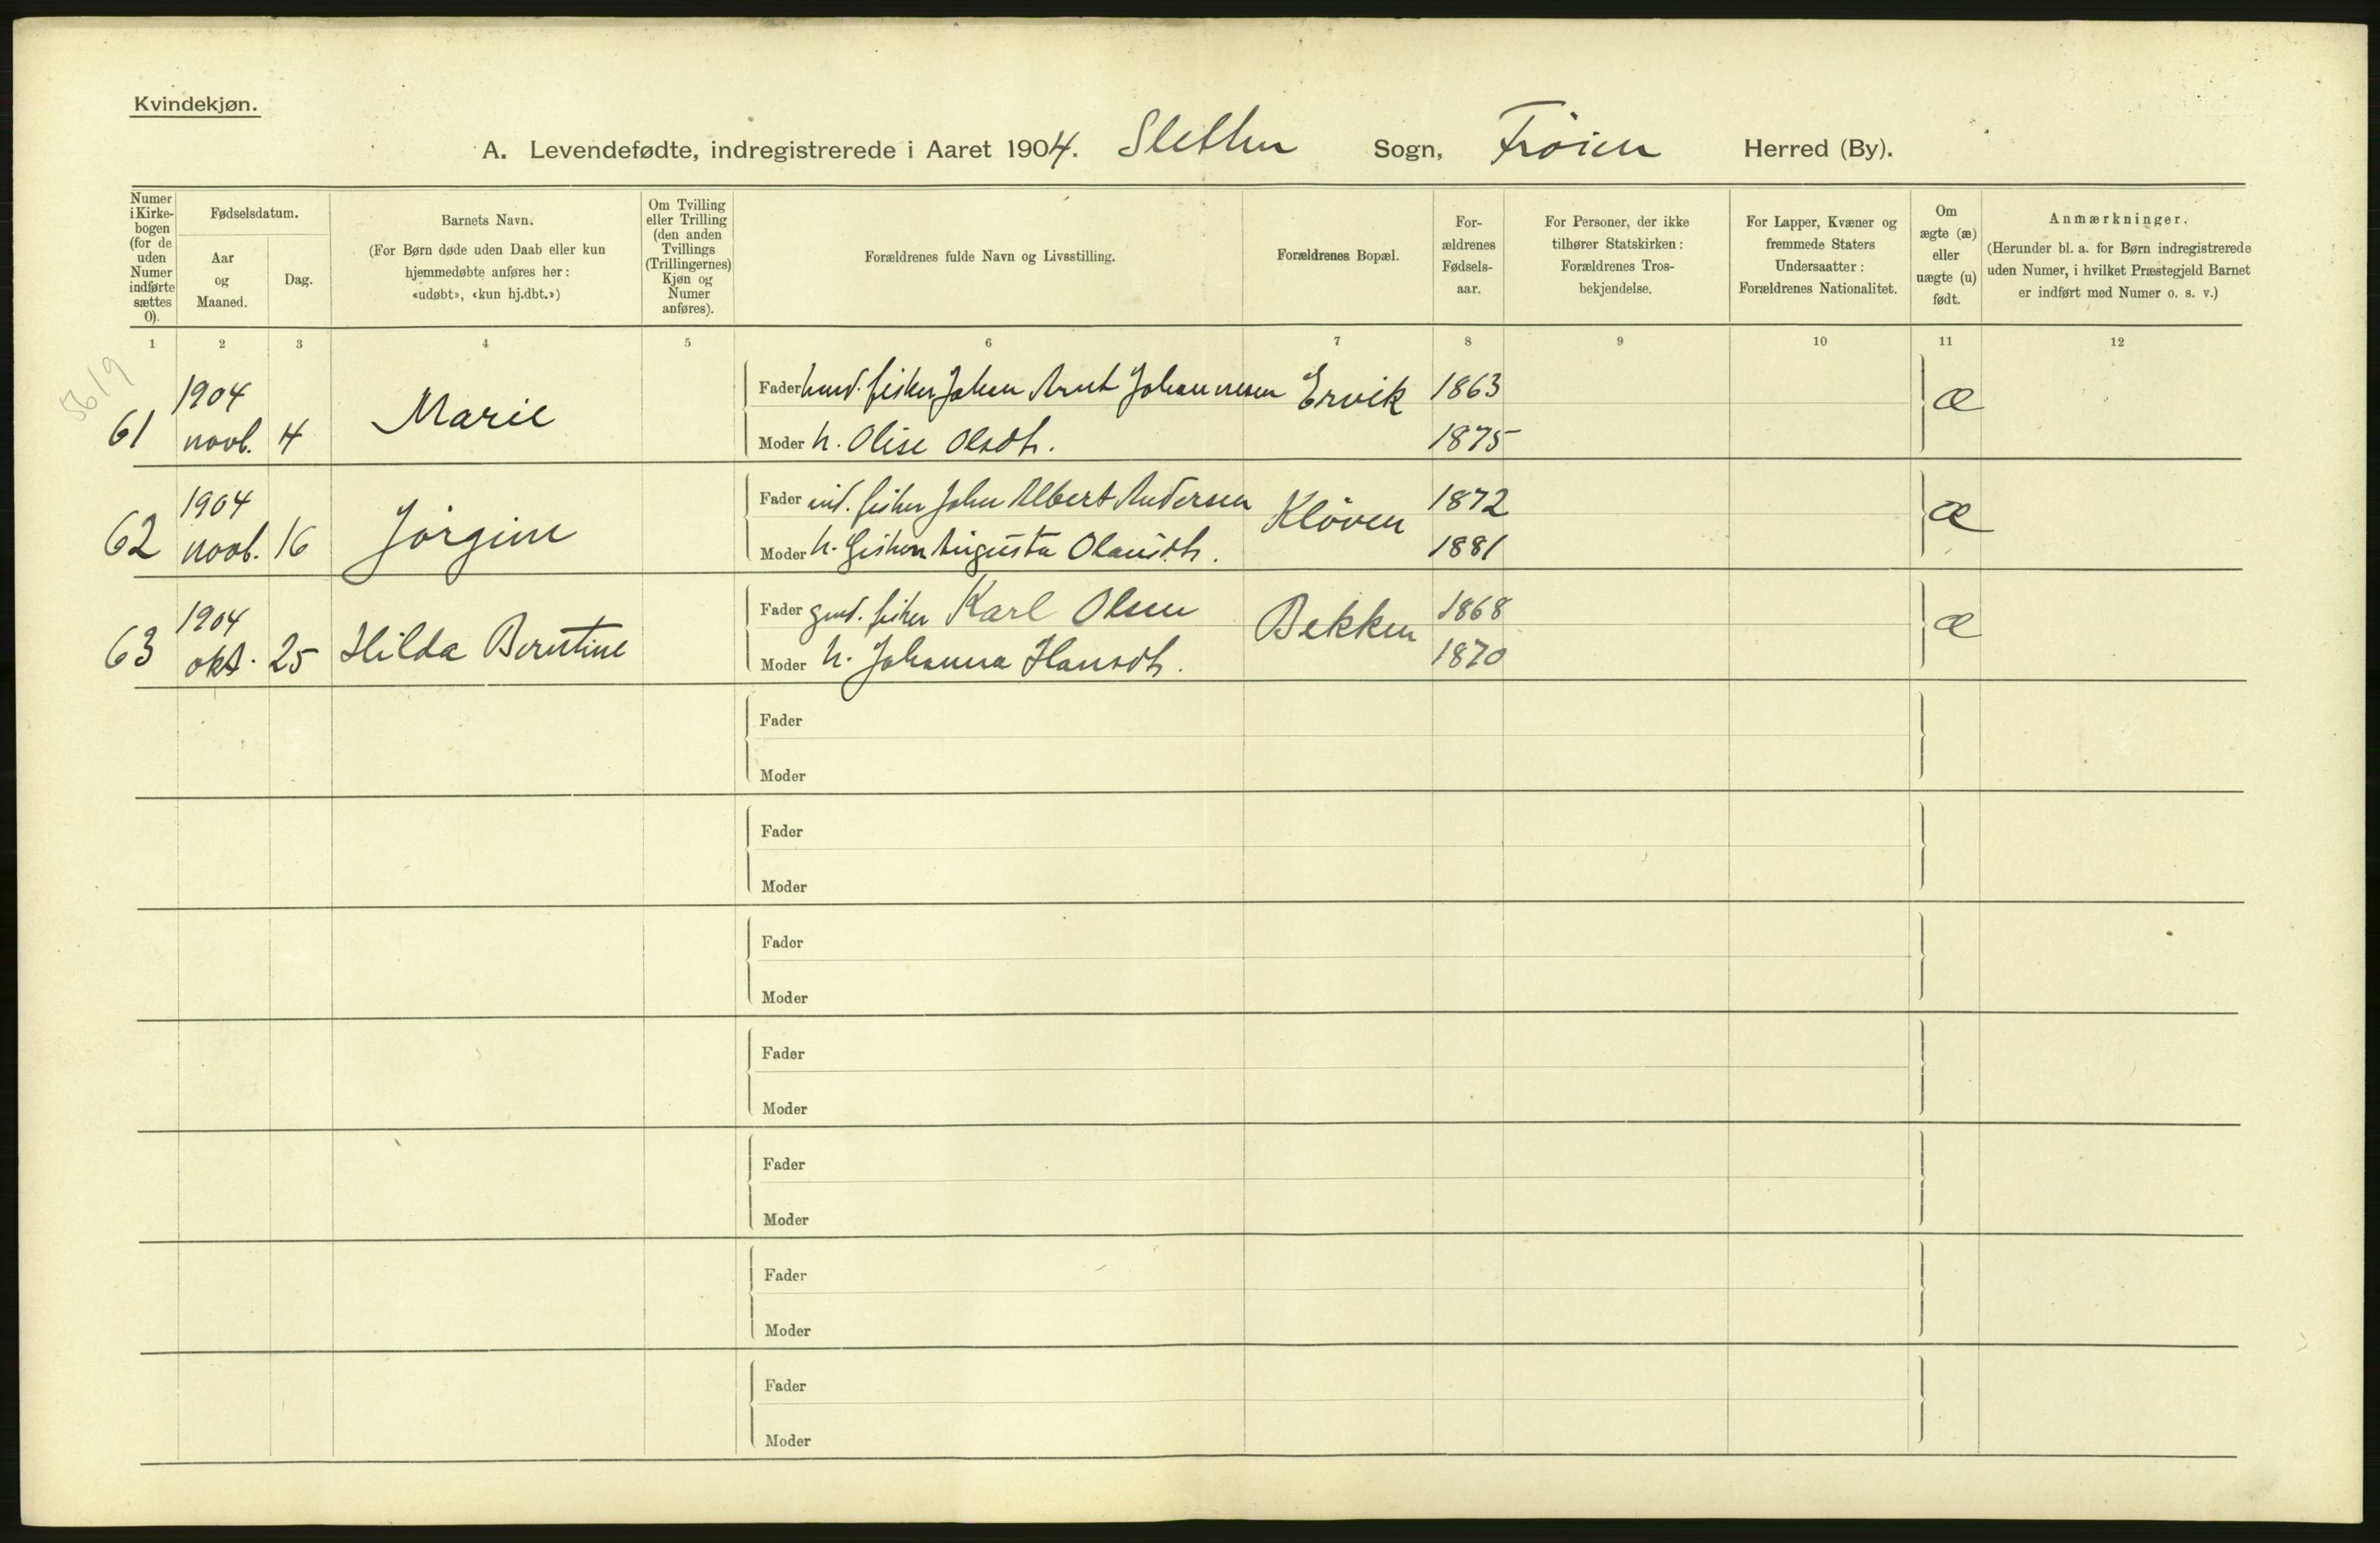 Kvindekjøn.
A. Levendefødte, indregistrerede i Aaret 1904. Sletten Sogn, Frøien Herred (By).
Numer i Kirke-bogen (for de uden Numer indførte sættes 0).
Fødselsdatum.
Aar og Maaned.
Dag.
Barnets Navn.
(For Børn døde uden Daab eller kun hjemmedøbte anføres her: «udøbt», «kun hj.dbt.»)
Om Tvilling eller Trilling (den anden Tvillings (Trillingernes) Kjøn og Numer anføres).
Forældrenes fulde Navn og Livsstilling.
Forældrenes Bopæl.
For-ældrenes Fødsels-aar.
For Personer, der ikke tilhører Statskirken: Forældrenes Tros-bekjendelse.
For Lapper, Kvæner og fremmede Staters Undersaatter: Forældrenes Nationalitet.
Om ægte (æ) eller uægte (u) født.
Anmærkninger.
(Herunder bl. a. for Børn indregistrerede uden Numer, i hvilket Præstegjeld Barnet er indført med Numer o. s. v.)
1 2 3 4 5 6 7 8 9 10 11 12
5619
61 1904 novb. 4 Marie
Fader fisker Johan Arnt Johannesen Ervik 1863 æ
Moder h. Olise Olsdt. 1875
62 1904 novb. 16 Jørgine
Fader ind. fisker John Albert Andersen Kløven 1872 æ
Moder h. Augusta Olausdt. 1881
63 1904 okt. 25 Hilda Berntine
Fader gmd. fisker Karl Olsen Bekken 1868 æ
Moder h. Johanna Hansdt. 1870
Fader
Moder
Fader
Moder
Fader
Moder
Fader
Moder
Fader
Moder
Fader
Moder
Fader
Moder